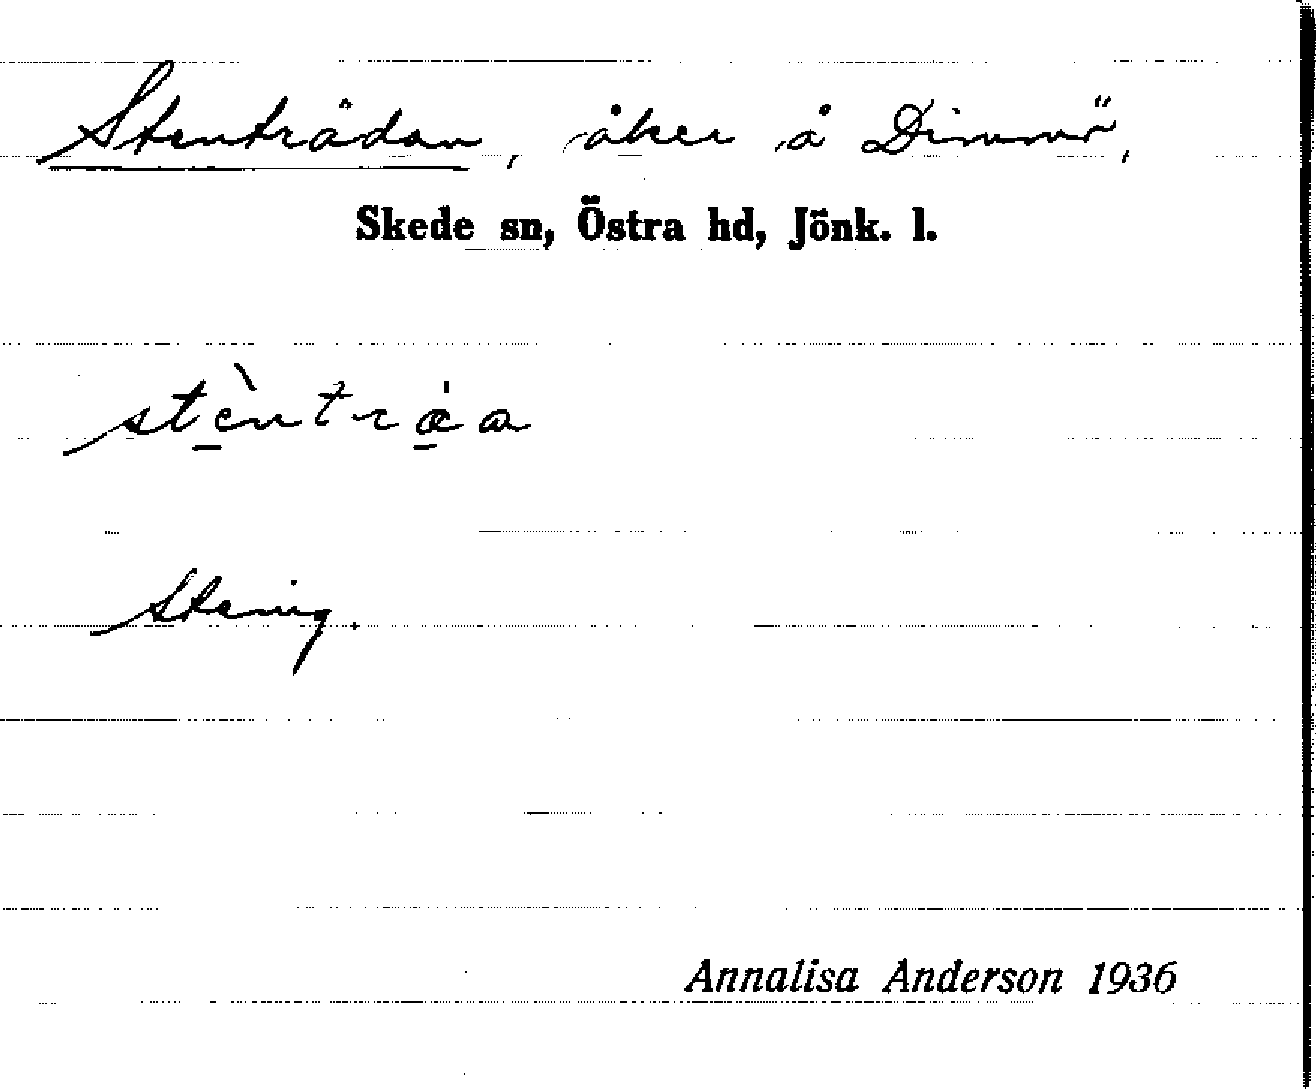 Stenträdan, åker å Dimmö,
Skede sn, Östra hd, Jönk. l.
stèntræa
Stenig.
Annalisa Anderson 1936